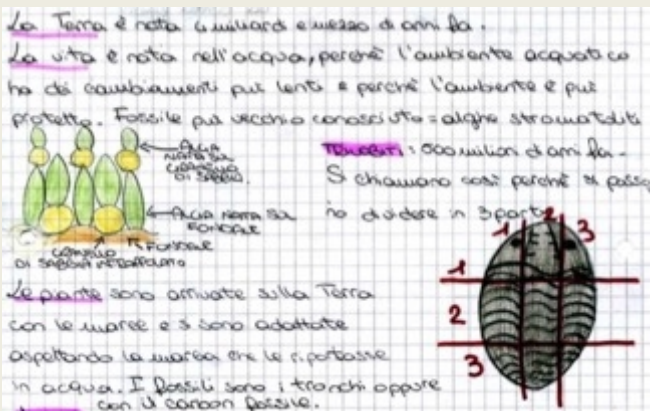 La Terra è nata 4 miliardi e mezzo di anni fa.
La vita è nata nell'acqua, perchè l'ambiente acquatico
ha dei cambiamenti più lenti e perchè l'ambiente è più
protetto. Fossile più vecchio conosciuto = alghe stromatoliti
ALGA
NATA SUL
GRANELLO
DI SABBIA.
ALGA NATA SUL
FONDALE
FONDALE
GRANELLO
DI SABBIA INTRAPPOLATO
TRILOBITI: 600 milioni di anni fa.
Si chiamano così perchè si posso
no dividere in 3 parti
1 2 3
1
2
3
Le piante sono arrivate sulla Terra
con le maree e si sono adattate
aspettando la marea che le riportasse
in acqua. I fossili sono i tronchi oppure
con il carbon fossile.